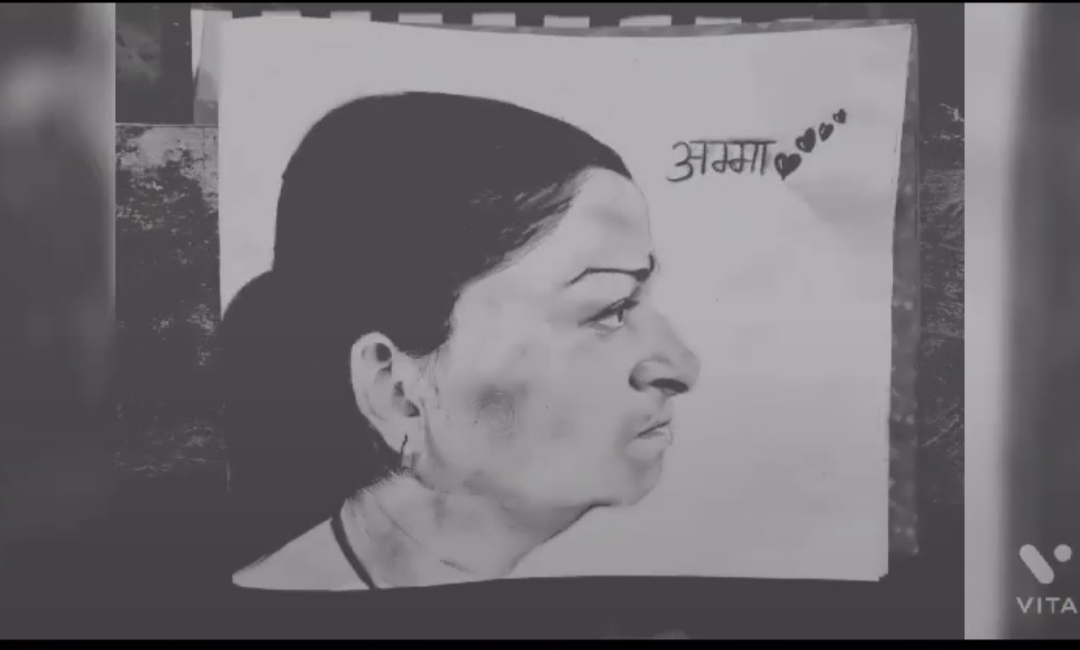 अम्मा
VITA